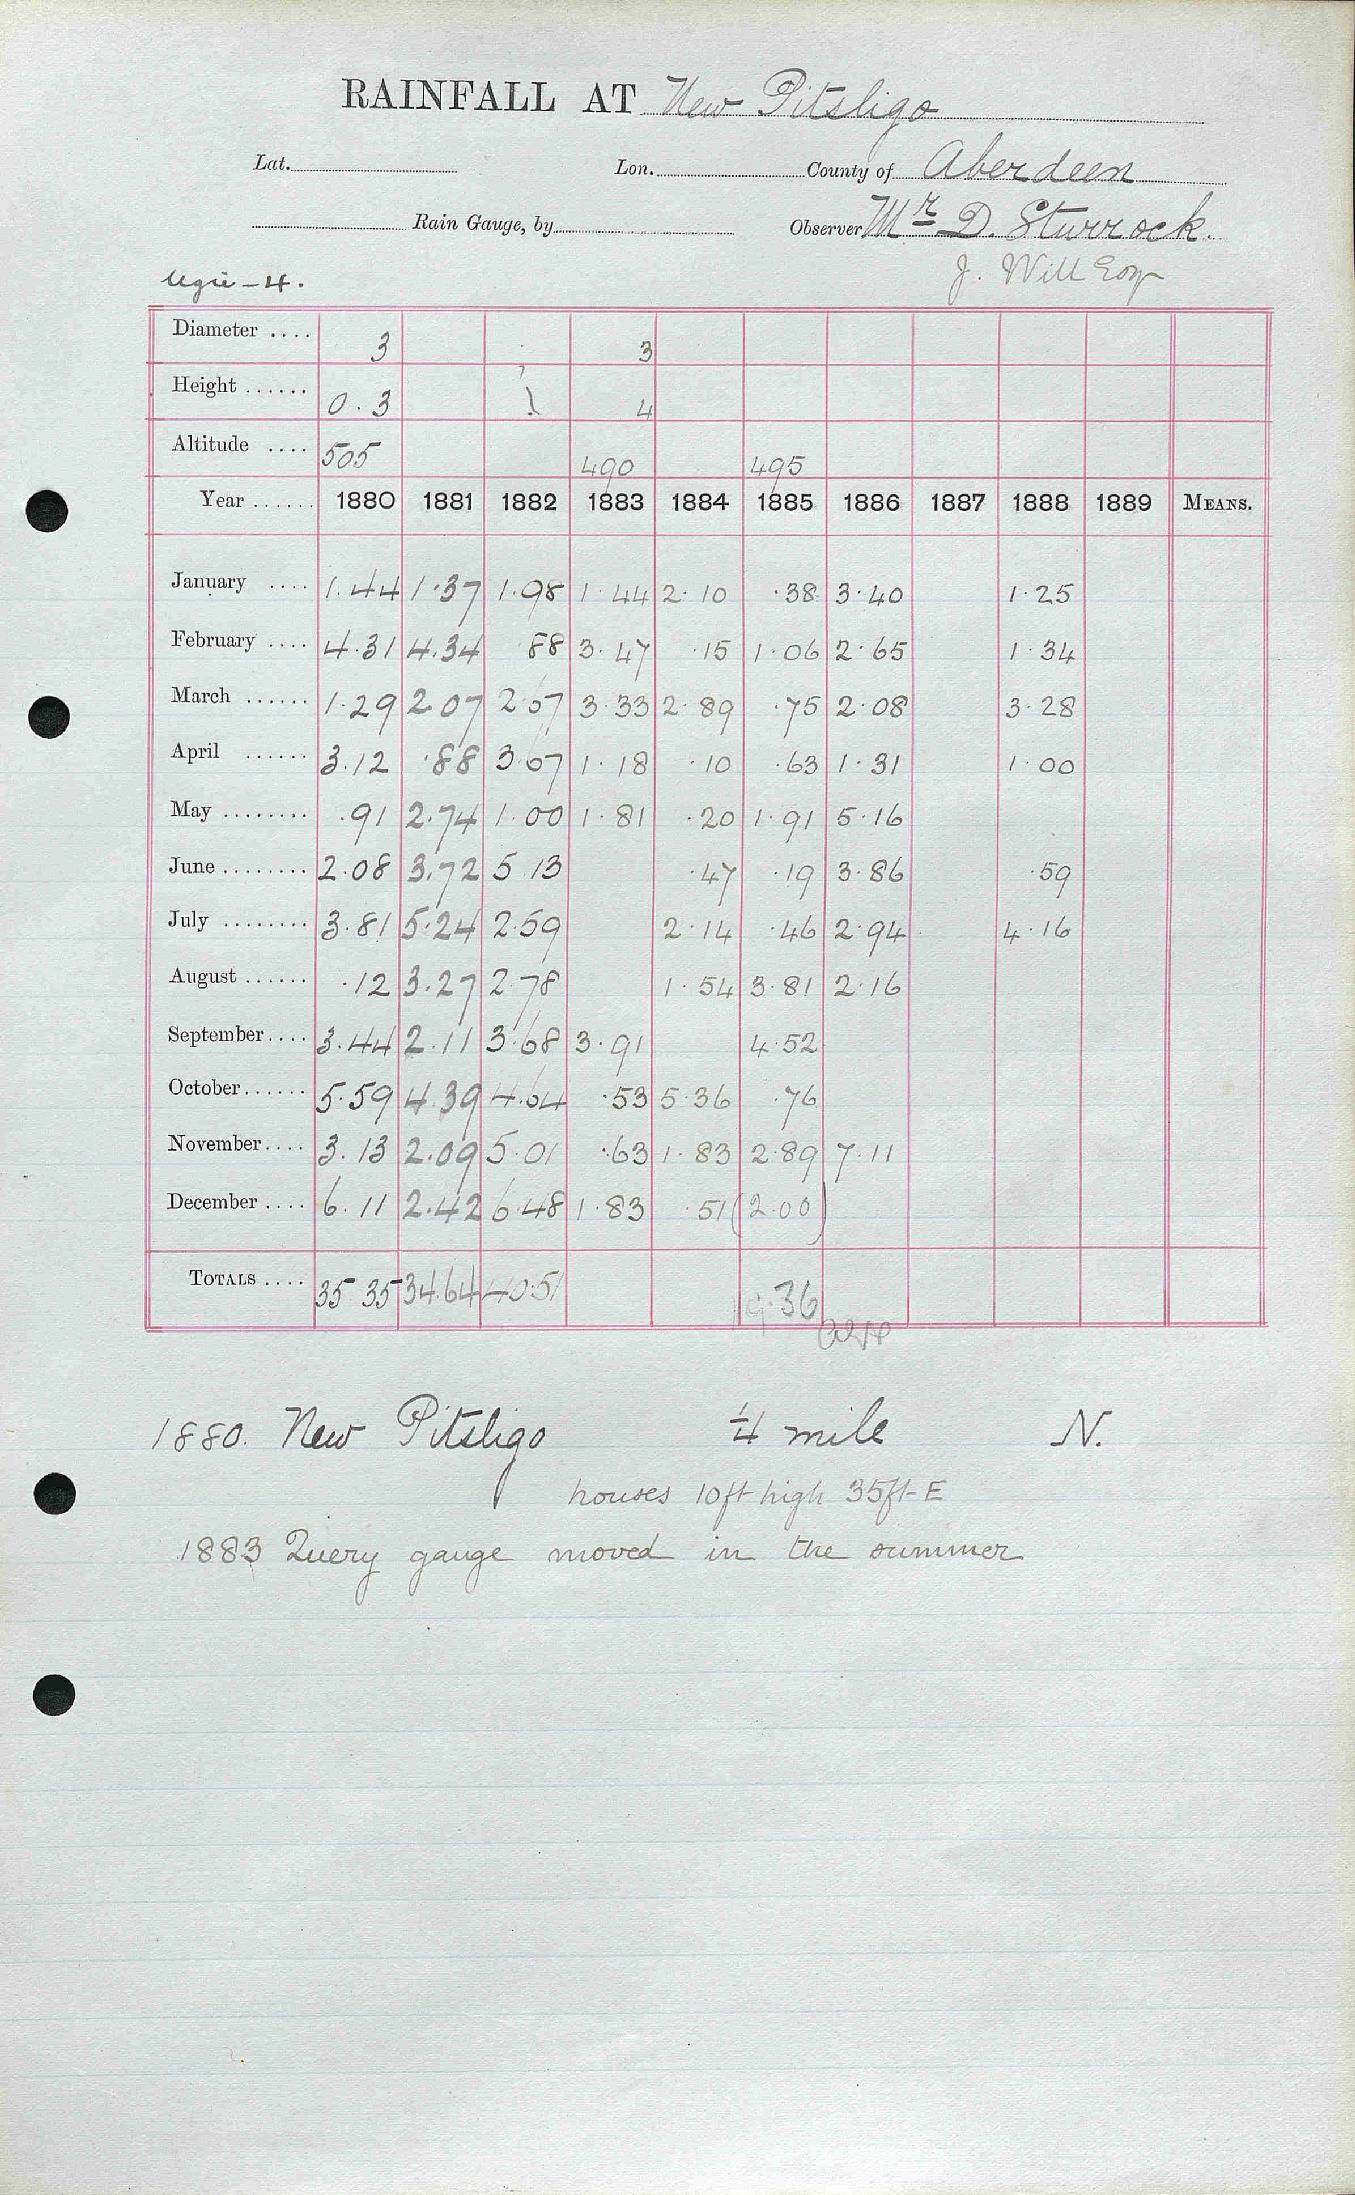 RAINFALL AT New Pitsligo
Lat. Lon. County of Aberdeen
Rain Gauge, by Observer Mr D. Sturrock.
Ugie - 4. J. Will Esqr
Diameter .... 3 3
Height ...... 0.3 1 4
Altitude .... 505 490 495
Year ...... 1880 1881 1882 1883 1884 1885 1886 1887 1888 1889 MEANS.
January .... 1.44 1.37 1.98 1.44 2.10 .38 3.40 1.25
February .... 4.31 4.34 .88 3.47 .15 1.06 2.65 1.34
March ...... 1.29 2.07 2.67 3.33 2.89 .75 2.08 3.28
April ...... 3.12 .88 3.67 1.18 .10 .63 1.31 1.00
May ........ .91 2.74 1.00 1.81 .20 1.91 5.16
June ........ 2.08 3.72 5.13 .47 .19 3.86 .59
July ........ 3.81 5.24 2.59 2.14 .46 2.94 4.16
August ...... .12 3.27 2.78 1.54 3.81 2.16
September .... 3.44 2.11 3.68 3.91 4.52
October ...... 5.59 4.39 4.64 .53 5.36 .76
November .... 3.13 2.09 5.01 .63 1.83 2.89 7.11
December .... 6.11 2.42 6.48 1.83 .51 (2.00)
TOTALS .... 35.35 34.64 40.51 19.36
1880. New Pitsligo 1/4 mile N.
houses 10ft high 35ft E
1883 Query gauge moved in the summer